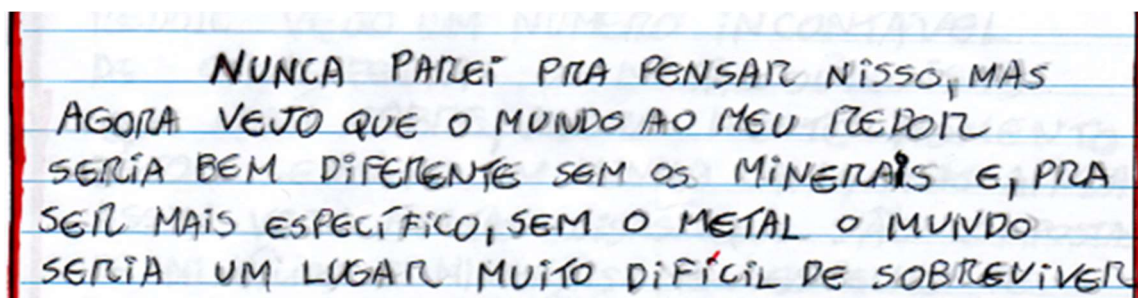 NUNCA PAREI PRA PENSAR NISSO, MAS
AGORA VEJO QUE O MUNDO AO MEU REDOR
SERIA BEM DIFERENTE SEM OS MINERAIS E, PRA
SER MAIS ESPECÍFICO, SEM O METAL O MUNDO
SERIA UM LUGAR MUITO DIFÍCIL DE SOBREVIVER